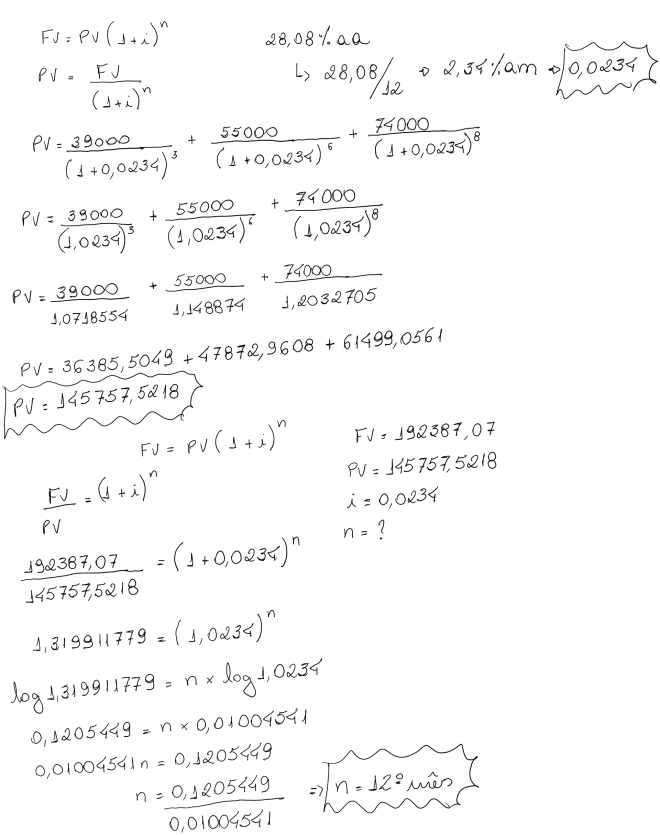 FV = PV (1+i)^n
28,08% aa
PV = FV / (1+i)^n
↳ 28,08/12 → 2,34% am → 0,0234
PV = 39000 / (1+0,0234)^3 + 55000 / (1+0,0234)^6 + 74000 / (1+0,0234)^8
PV = 39000 / (1,0234)^3 + 55000 / (1,0234)^6 + 74000 / (1,0234)^8
PV = 39000 / 1,0718554 + 55000 / 1,148874 + 74000 / 1,2032705
PV = 36385,5049 + 47872,9608 + 61499,0561
PV = 145757,5218
FV = PV (1+i)^n
FV = 192387,07
FV / PV = (1+i)^n
PV = 145757,5218
i = 0,0234
n = ?
192387,07 / 145757,5218 = (1+0,0234)^n
1,319911779 = (1,0234)^n
log 1,319911779 = n × log 1,0234
0,1205449 = n × 0,01004541
0,01004541 n = 0,1205449
n = 0,1205449 / 0,01004541 => n = 12º mês